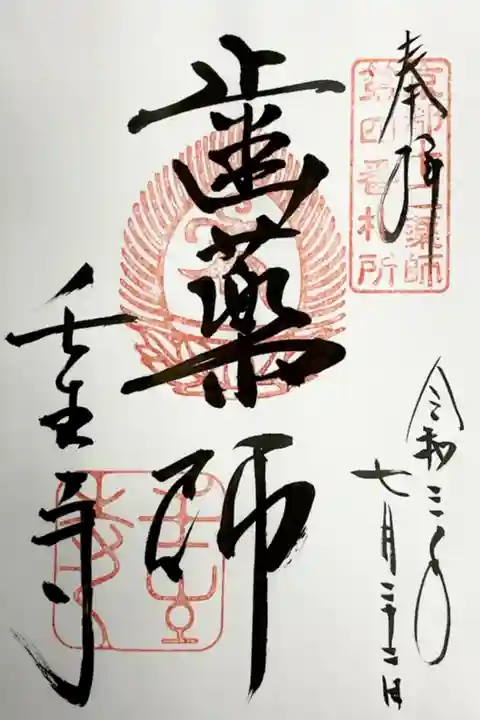 奉拝
京都十二薬師
第四番札所
令和三年
七月二十二日
歯薬師
壬生寺